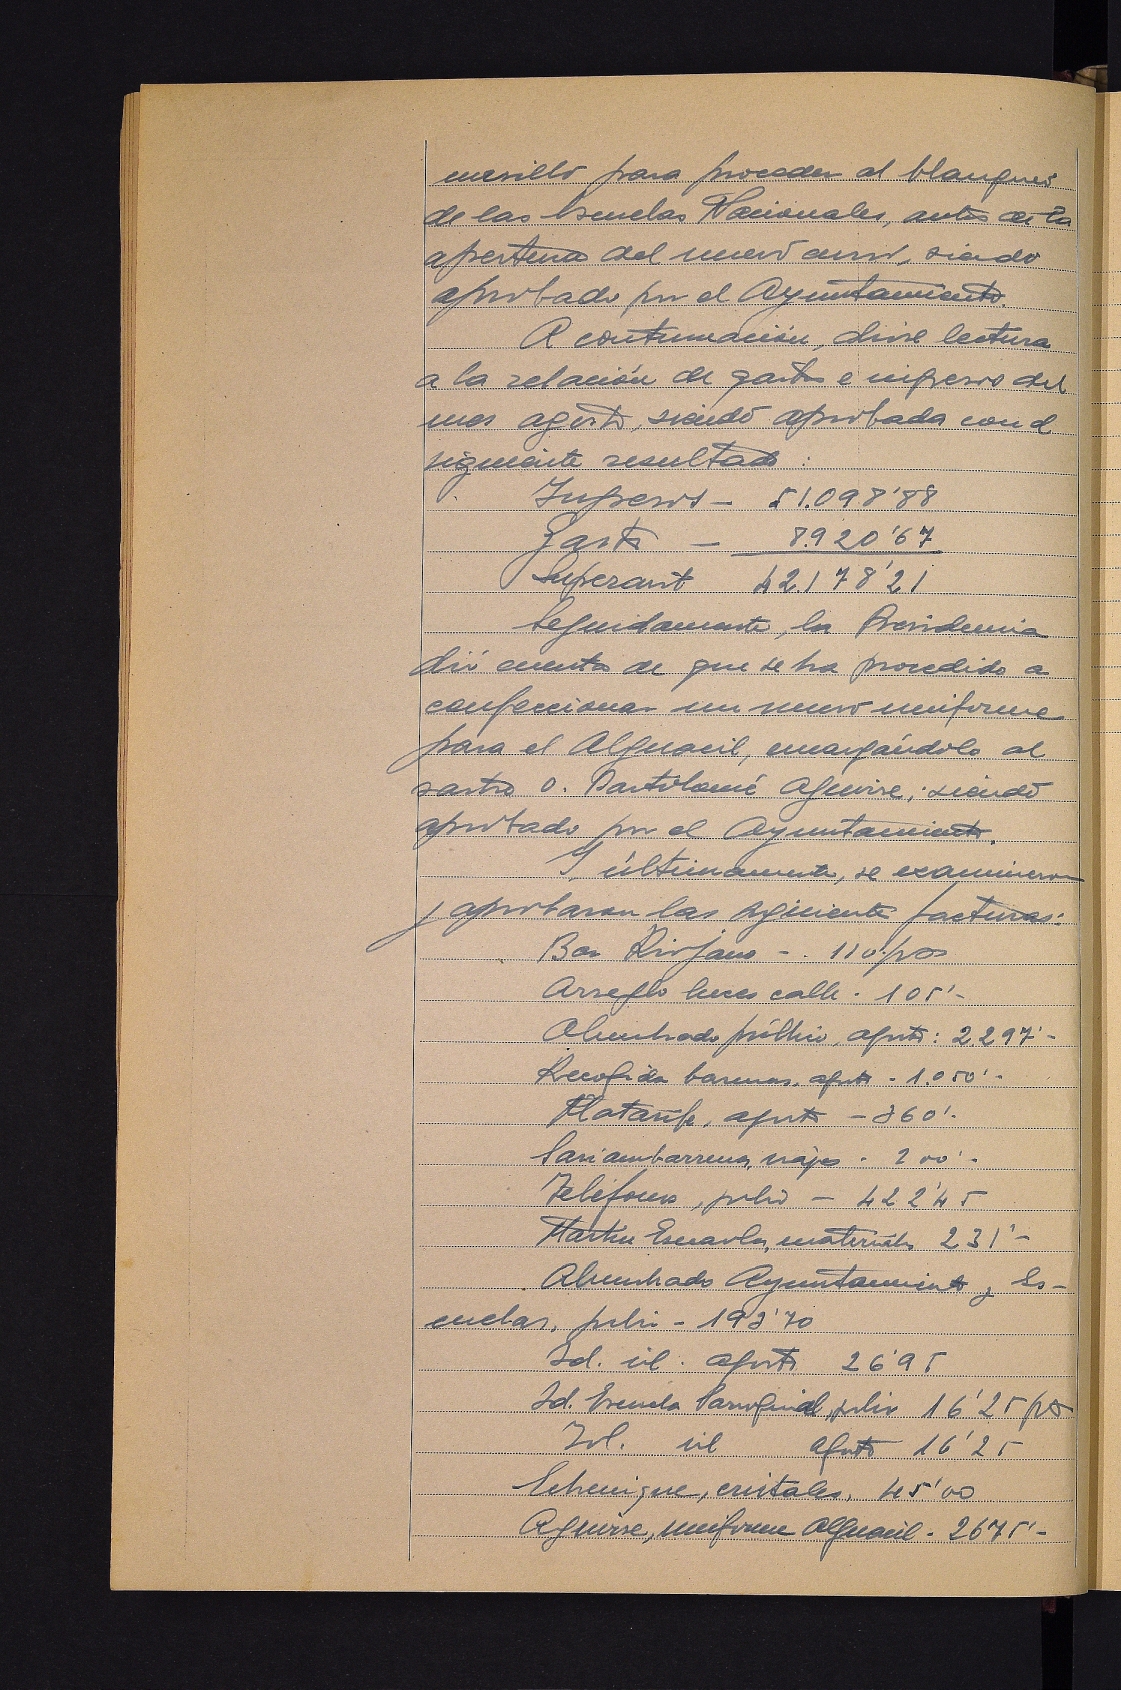 para proceder al blanqueo
de las Escuelas Nacionales, antes de la
apertura del nuevo curso, siendo
aprobado por el Ayuntamiento.
A continuación, dióse lectura
a la relación de gastos e ingresos del
mes agosto, siendo aprobada con el
siguiente resultado:
Ingresos - 51.098'88
Gastos - 8.920'67
Superavit 42.178'21
Seguidamente, la Presidencia
dió cuenta de que se ha procedido a
confeccionar un nuevo uniforme
para el Alguacil, encargándolo al
sastre D. Bartolomé Aguirre; siendo
aprobado por el Ayuntamiento.
Y últimamente, se examinaron
y aprobaron las siguientes facturas:
Bar Riojano - 110 pts
Arreglo luces calle - 105'-
Alumbrado público, agosto: 2.297'-
Recogida basuras, agosto - 1.050'-
Matarife, agosto - 360'-
Sariambarrena, viajes - 200'-
Teléfonos, julio - 422'45
Martin Escaola, materiales 231'-
Alumbrado Ayuntamiento y Es-
cuelas, julio - 193'70
Id. id. agosto 26'95
Id. Escuela Parroquial, julio 16'25 pts
Id. id agosto 16'25
Echenique, cristales, 45'00
Aguirre, uniforme Alguacil - 2675'-